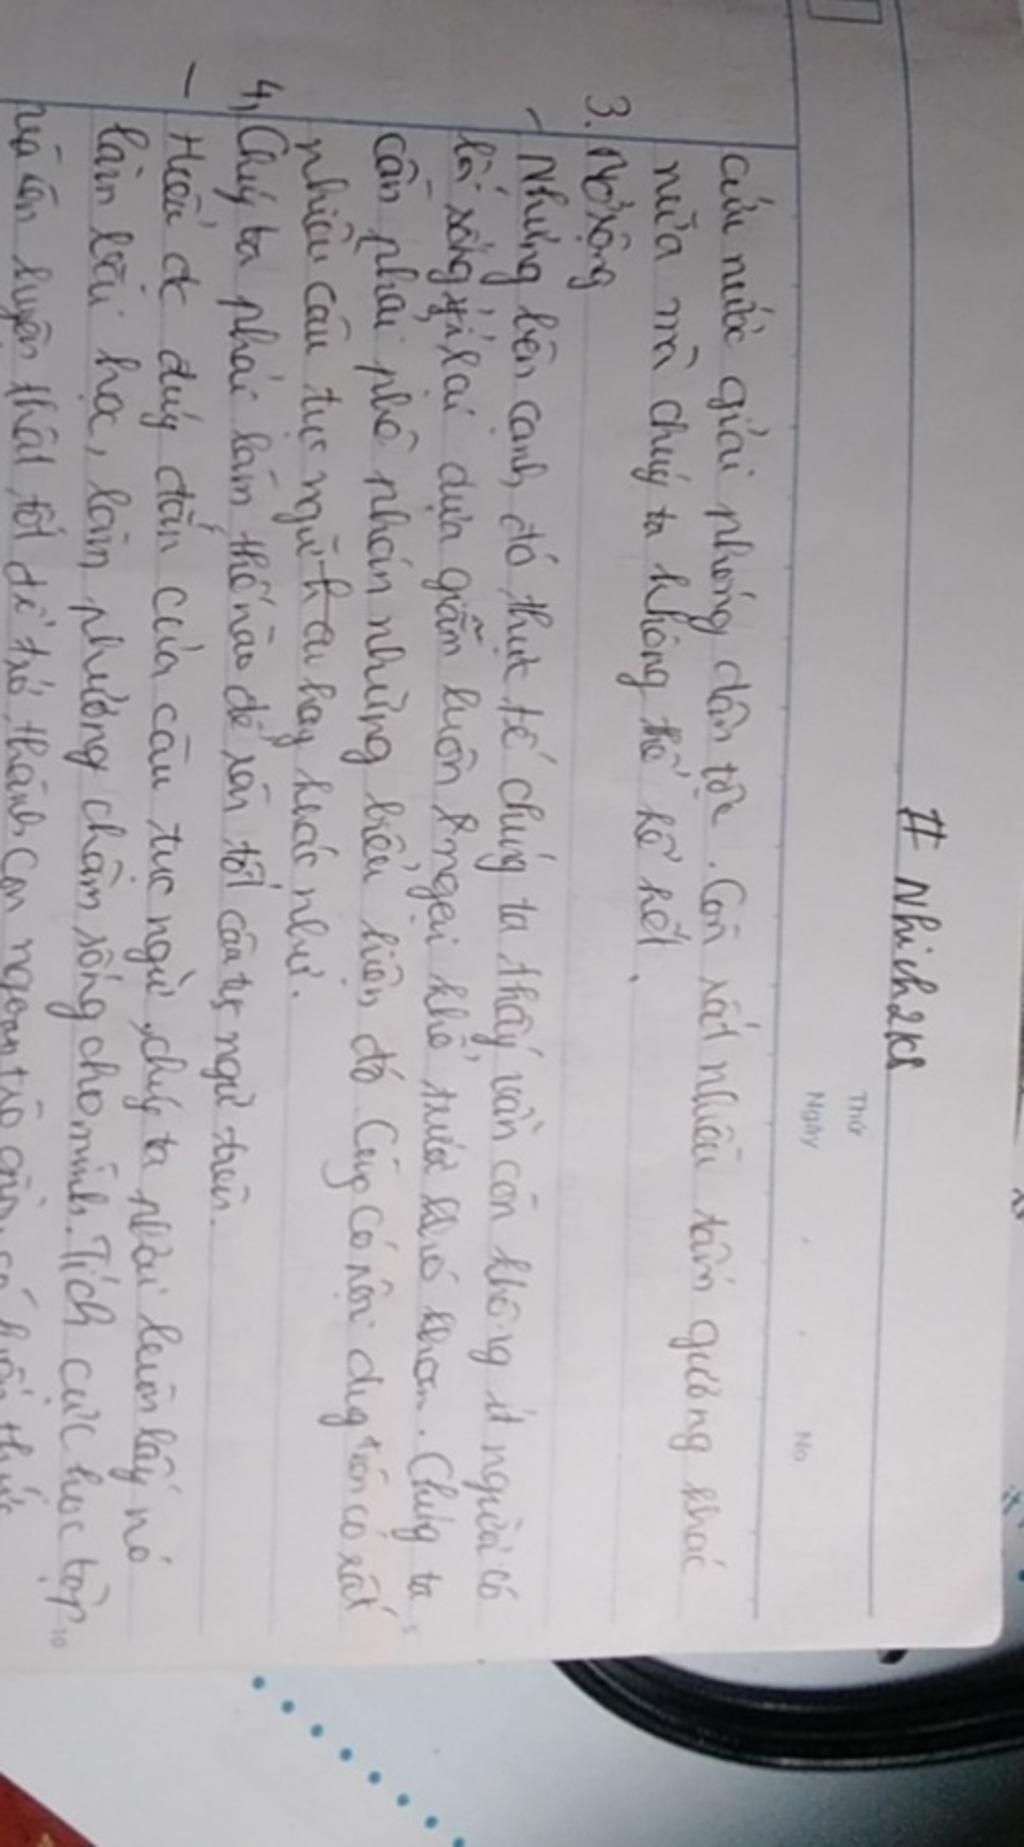 # Nhịch2k8
Thứ
Ngày
No
cứu nước giải phóng dân tộc. Còn rất nhiều tấm gương khác
nữa mà chúg ta không thể kể hết.
3. Mở rộng
- Nhưng bên cạnh đó, thực tế chúg ta thấy vẫn còn không ít người có
lối sống ỷ lại dựa dẫm luôn ngại khổ trước khó khăn. Chúg ta
cần phải phê phán những biểu hiện đó. Cúg có nội dug trên có rất
nhiều câu tục ngữ hay khác như.
4, Chúg ta phải làm thế nào để rèn tốt câu tục ngữ trên.
- Hiểu đc đúg đắn của câu tục ngữ, chúg ta phải luôn lấy nó
làm bài học, làm phương châm sống cho mình. Tích cực học tập
và rèn luyện thật tốt để trở thành con ngoan trò giỏi, có kiến thức